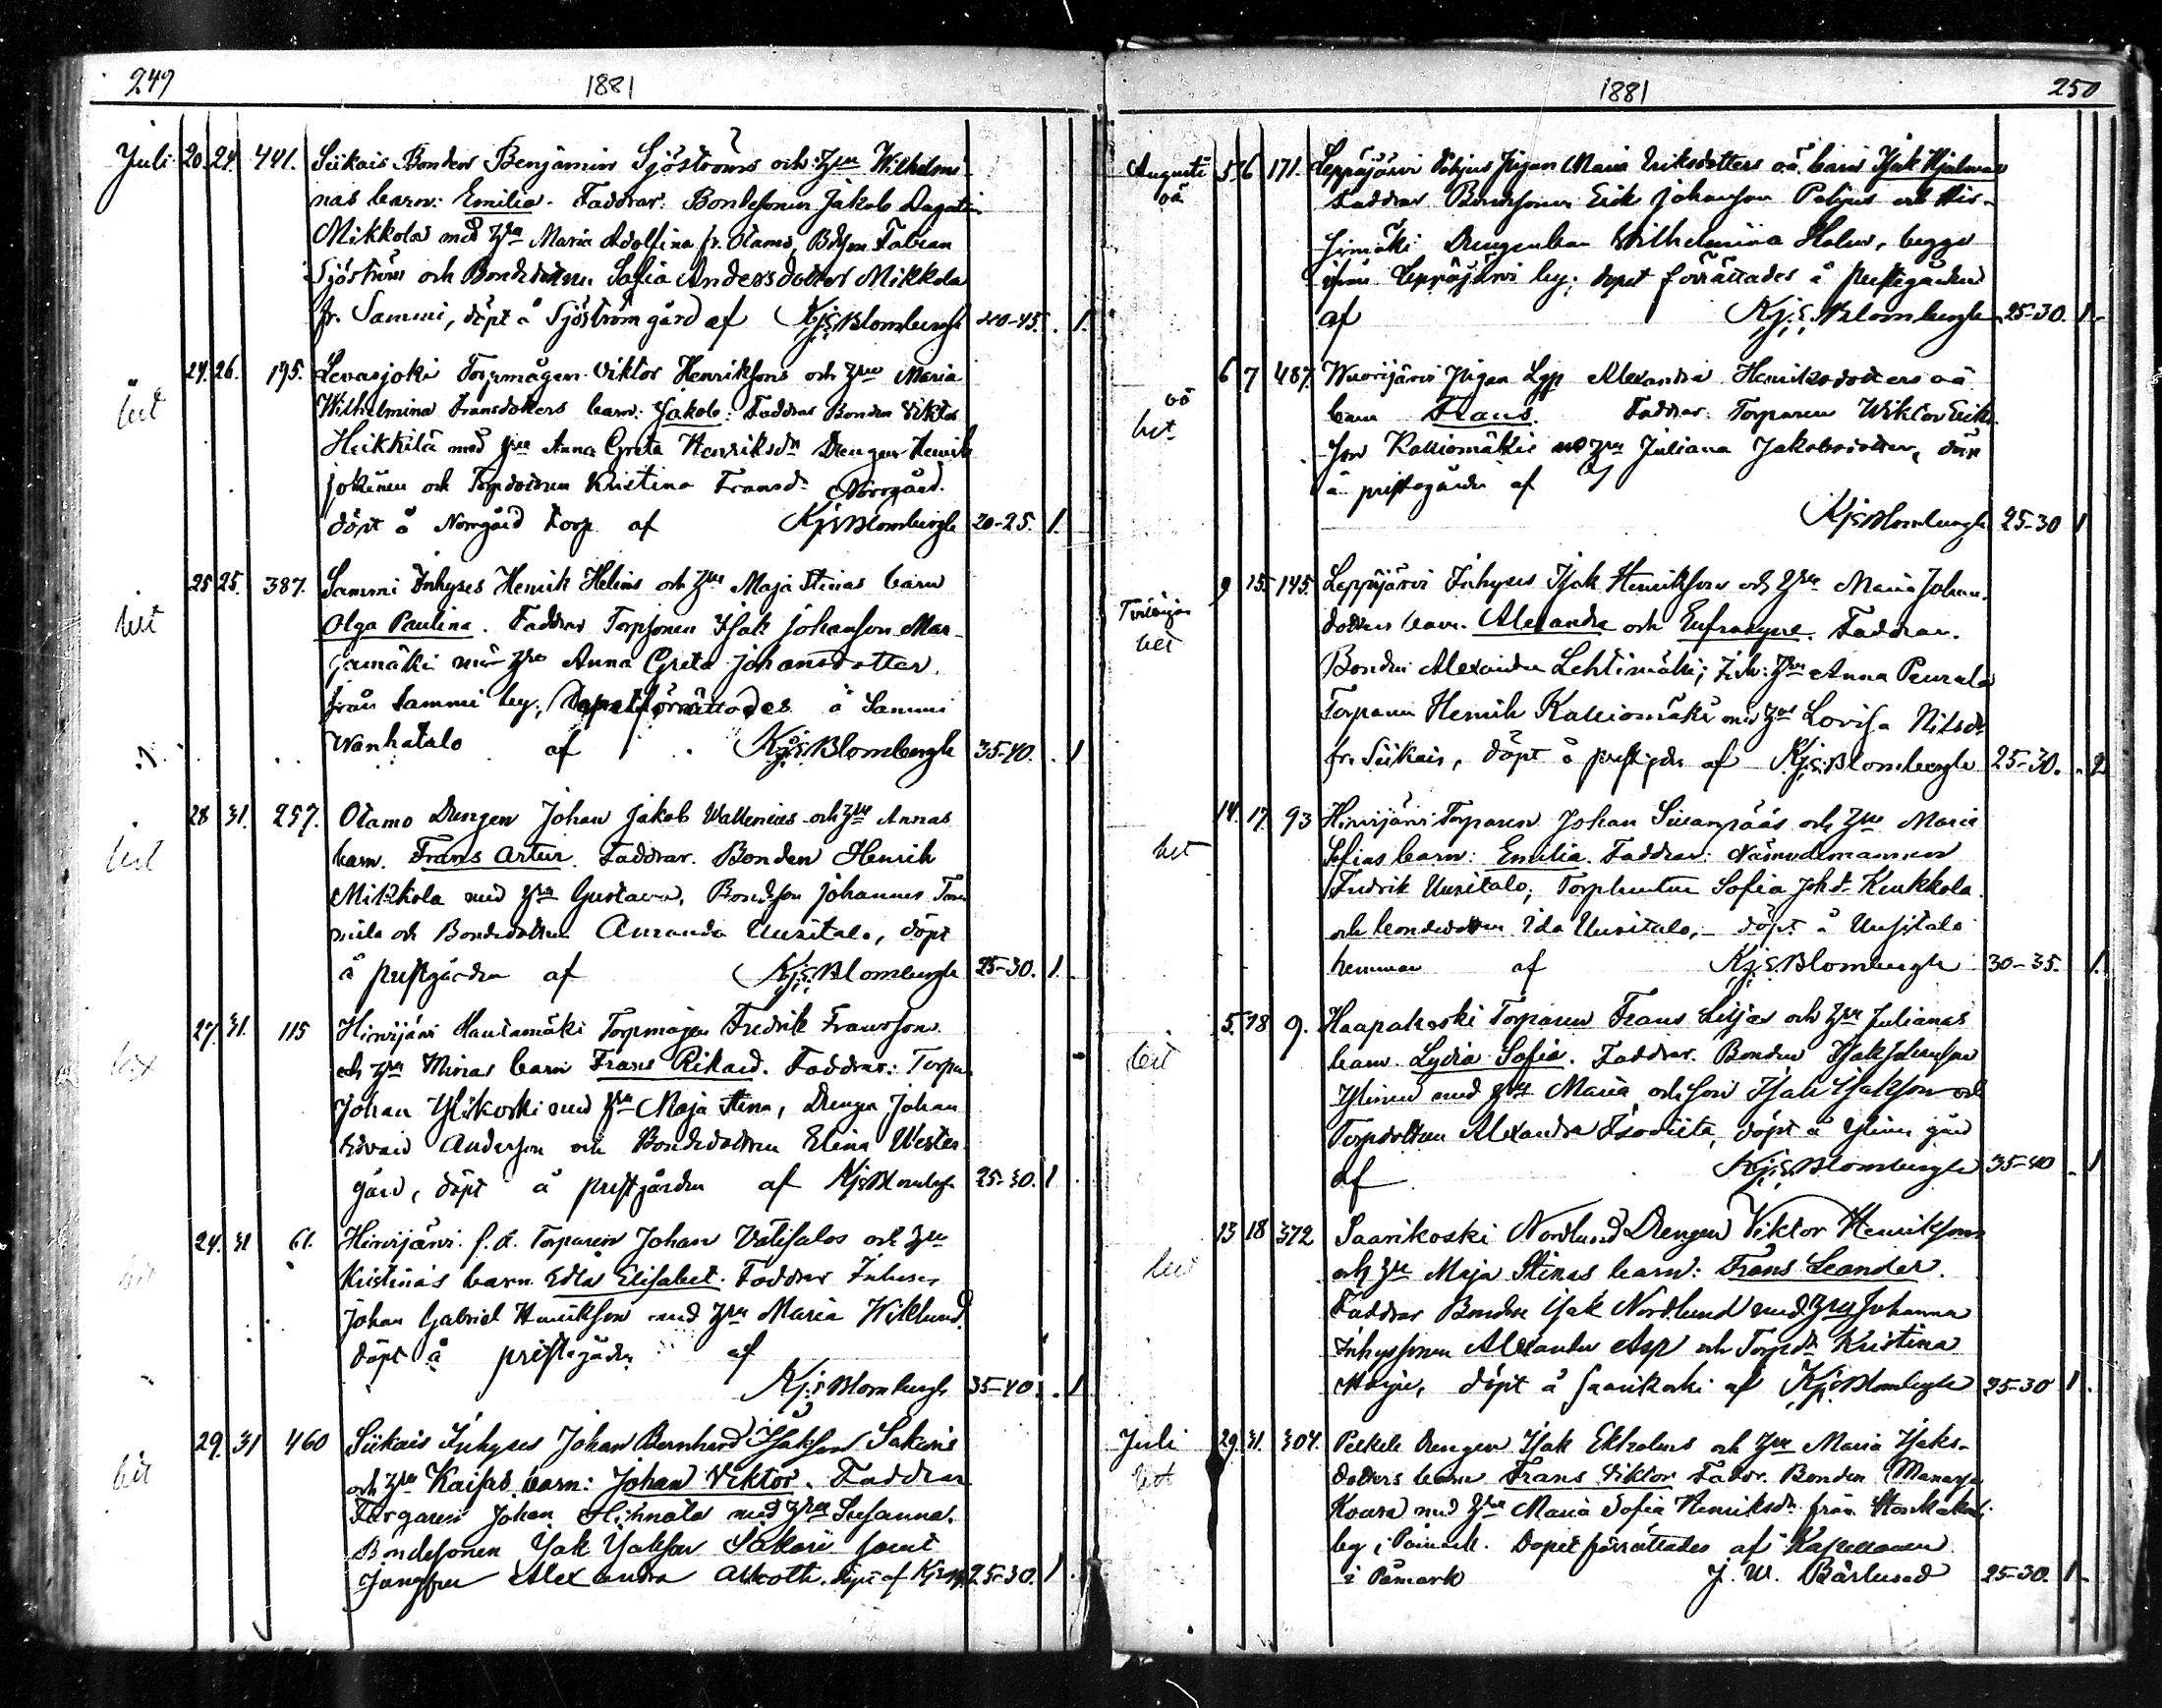 249
1881
Juli 20. 24. 441. Siikais Bonden Benjamin Sjöströms och hru Wilhelmi-
nas barn: Emilia. Faddrar: Bondesonen Jakob
Mikkola med hru Maria Adolfina fr. Otamo, Fabian
Sjöström och Bondedottren Sofia Andersdotter Mikkola
fr. Sammi, döpt å Sjöström gård af Kj: S: Blombergh 40-45. 1.
24. 26. 195. Levasjoki Torpmågen Viktor Henriksons och hru Maria
Wilhelmina Fransdotters barn: Jakob: Faddrar Bonden Viktor
Heikkilä med hru Anna Greta Henriksdr Drengen Henrik
Jokinen och Torpdottren Kristina Fransdr Norrgård.
döpt å Norrgård torp af Kj: S: Blombergh 20-25. 1.
25 25. 387. Sammi Inhyses Henrik Helins och hru Maja Stinas barn
Olga Paulina. Faddrar Torpsonen Isak Johanson
med hru Anna Greta Johansdotter
från Sammi by; Dopet förrättades å Sammi
Wanhatalo af Kj: S: Blombergh 35-40. 1
28 31. 257. Otamo Drengen Johan Jakob Wallenius och hru Annas
barn. Frans Artur. Faddrar. Bonden Henrik
Mikkola med hru Gustava, Bondeson Johannes
och Bondedottren Amanda Uusitalo, döpt
å prestgården af Kj: S: Blombergh 25-30. 1.
27. 31. 115 Hirvijärvi Torpmågen Fredrik Fransson
och hru Minas barn Frans Rikard. Faddrar: Torpn
Johan Ylikoski med hru Maja Stina, Drengen Johan
Edvard Anderson och Bondedottren Elina Wester-
gård, döpt å prestgården af Kj: S: Blombergh 25-30. 1
24. 31 61. Hirvijärvi f. d. Torparen Johan och hru
Kristinas barn. Edla Elisabet. Faddrar Inhyses
Johan Gabriel Henrikson med hru Maria Wiklund.
döpt å prestgården af
Kj: S: Blombergh 35-40. 1
29. 31 460 Siikais Inhyses Johan Bernhard Isakson Sakaris
och hru Kaisas barn: Johan Viktor. Faddrar
Johan med hru Susanna.
Bondesonen Isak Isakson Sakari samt
Jungfru Alexandra döpt af 25-30. 1
1881
250
Augusti oä 5. 6 171. Leppäjärvi Pigan Maria Eriksdotters oä barn Isak Hjalmar
Faddrar Bondsonen Erik Johanson och
Wilhelmina Holm, begge
ifrån Leppäjärvi by; dopet förrättades å prestgården
af Kj: S: Blombergh 25-30. 1.
oä 6 7 487. Wuorijärvi Pigan Alexandra Henriksdotters oä
barn Frans. Faddrar: Torparen Wiktor Erik-
son Kalliomäki med hru Juliana Jakobsdotter, döpt
å prestgården af
Kj: S: Blombergh 25-30 1
Tvillingar 9 15. 145. Leppäjärvi Inhyses Isak Henrikson och hru Maria Johan-
dotters barn. Alexandra och Eufrosyne. Faddrar.
Bonden Alexander Lehtimäki; Inh: hru Anna Peurala
Torparen Henrik Kalliomäki med hru Lovisa Nilsdr
fr. Siikais, döpt å prestgdn af Kj: S: Blombergh 25-30. 2
14. 17. 93 Hirvijärvi Torparen Johan och hru Maria
Sofias barn: Emilia. Faddrar: Nämndemannen
Fredrik Uusitalo; Sofia Johdr Kuukkola
och bondedottren Ida Uusitalo, döpt å Uusitalo
hemman af Kj: S: Blombergh 30-35. 1.
5. 18 9. Haapakoski Torparen Frans Liljas och hru Julianas
barn. Lydia Sofia. Faddrar. Bonden Isak Johanson
Ylinen med hru Maria och son Isak Isakson och
Torpdottren Alexandra döpt å Ylinen gård
af Kj: S: Blombergh 35-40 1
13 18 372 Saarikoski Nordlund Drengen Viktor Henriksons
och hru Maja Stinas barn: Frans Leander.
Faddrar Bonden Isak Nordlund med hru Johanna
Inhyssonen Alexander Asp och Torpdr Kristina
döpt å Saarikoski af Kj: S: Blombergh 25-30 1.
Juli 29. 31. 304. Drengen Isak Ekholms och hru Maria Isaks-
dotters barn Frans Viktor Faddr. Bonden
med hru Maria Sofia Henriksdr från
by i Påmark. Dopet förrättades af Kapellanen
i Påmark J. W. Bärlund 25-30. 1